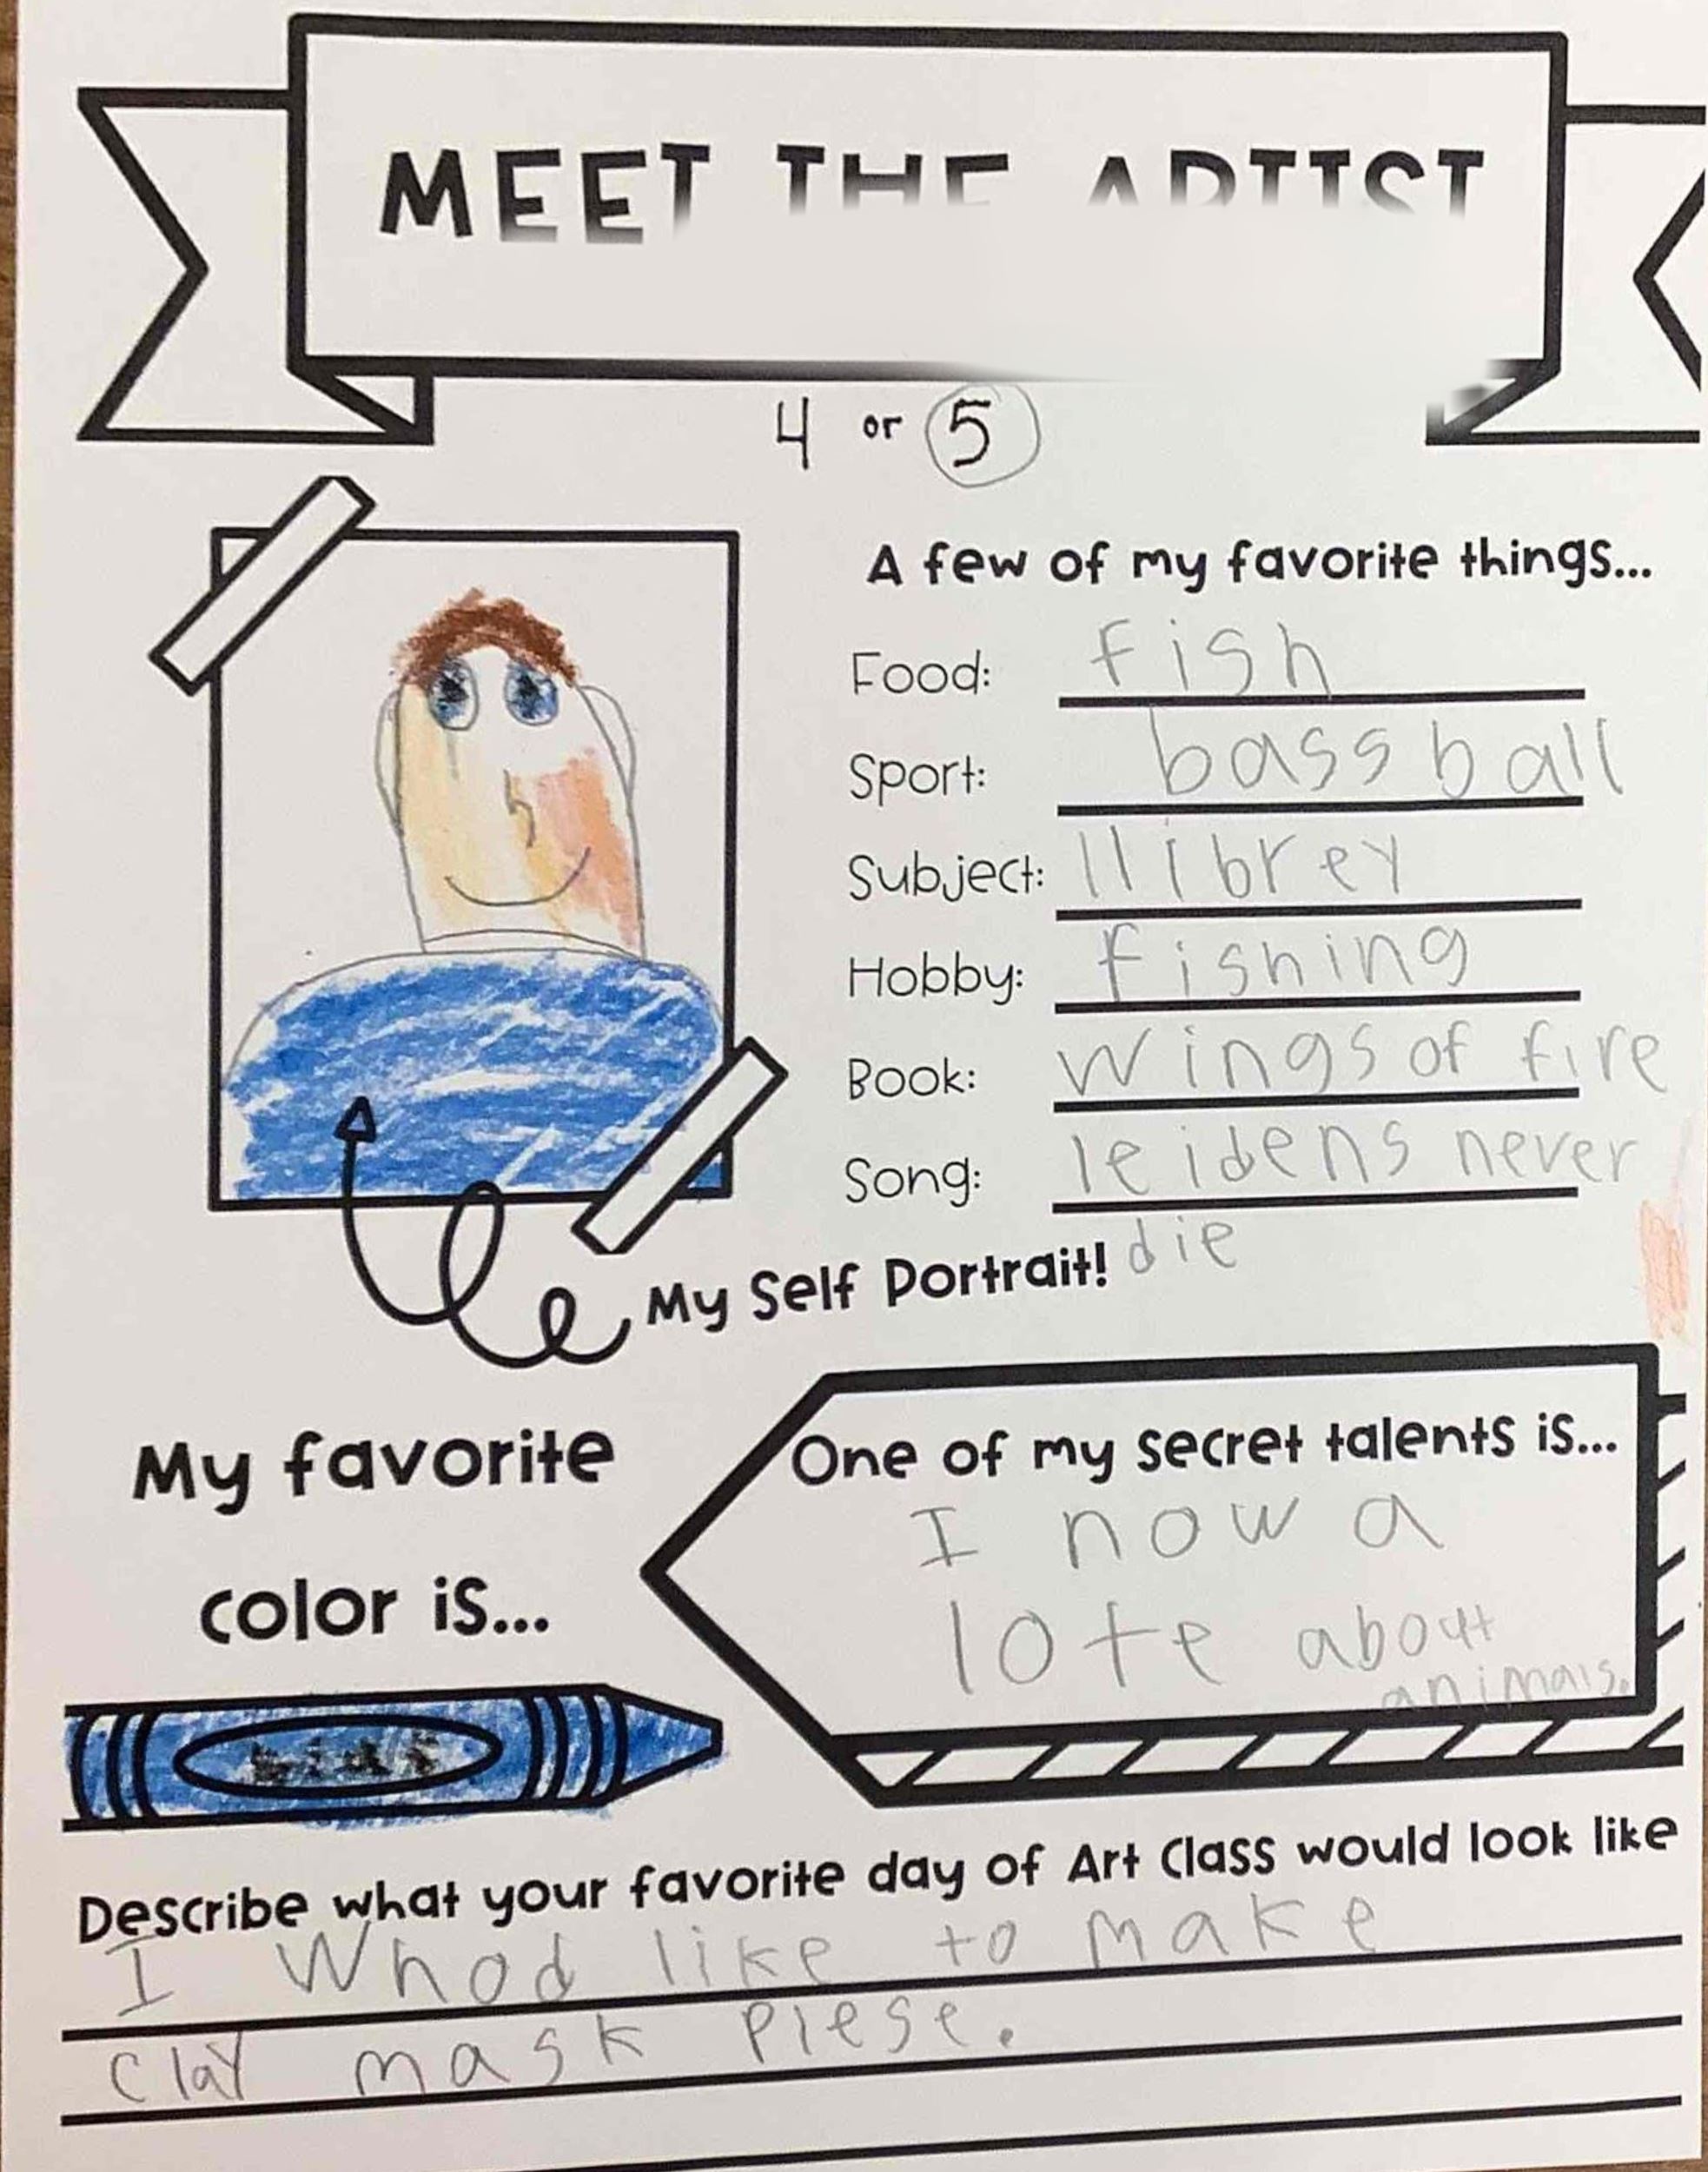 MEET THE ARTIST
4 or 5
A few of my favorite things...
Food: fish
Sport: bassball
Subject: llibrey
Hobby: fishing
Book: wings of fire
Song: leidens never
die
My Self Portrait!
My favorite
color is...
One of my secret talents is...
I now a
lote about
animals.
Describe what your favorite day of Art Class would look like
I Whod like to make
clay mask plese.